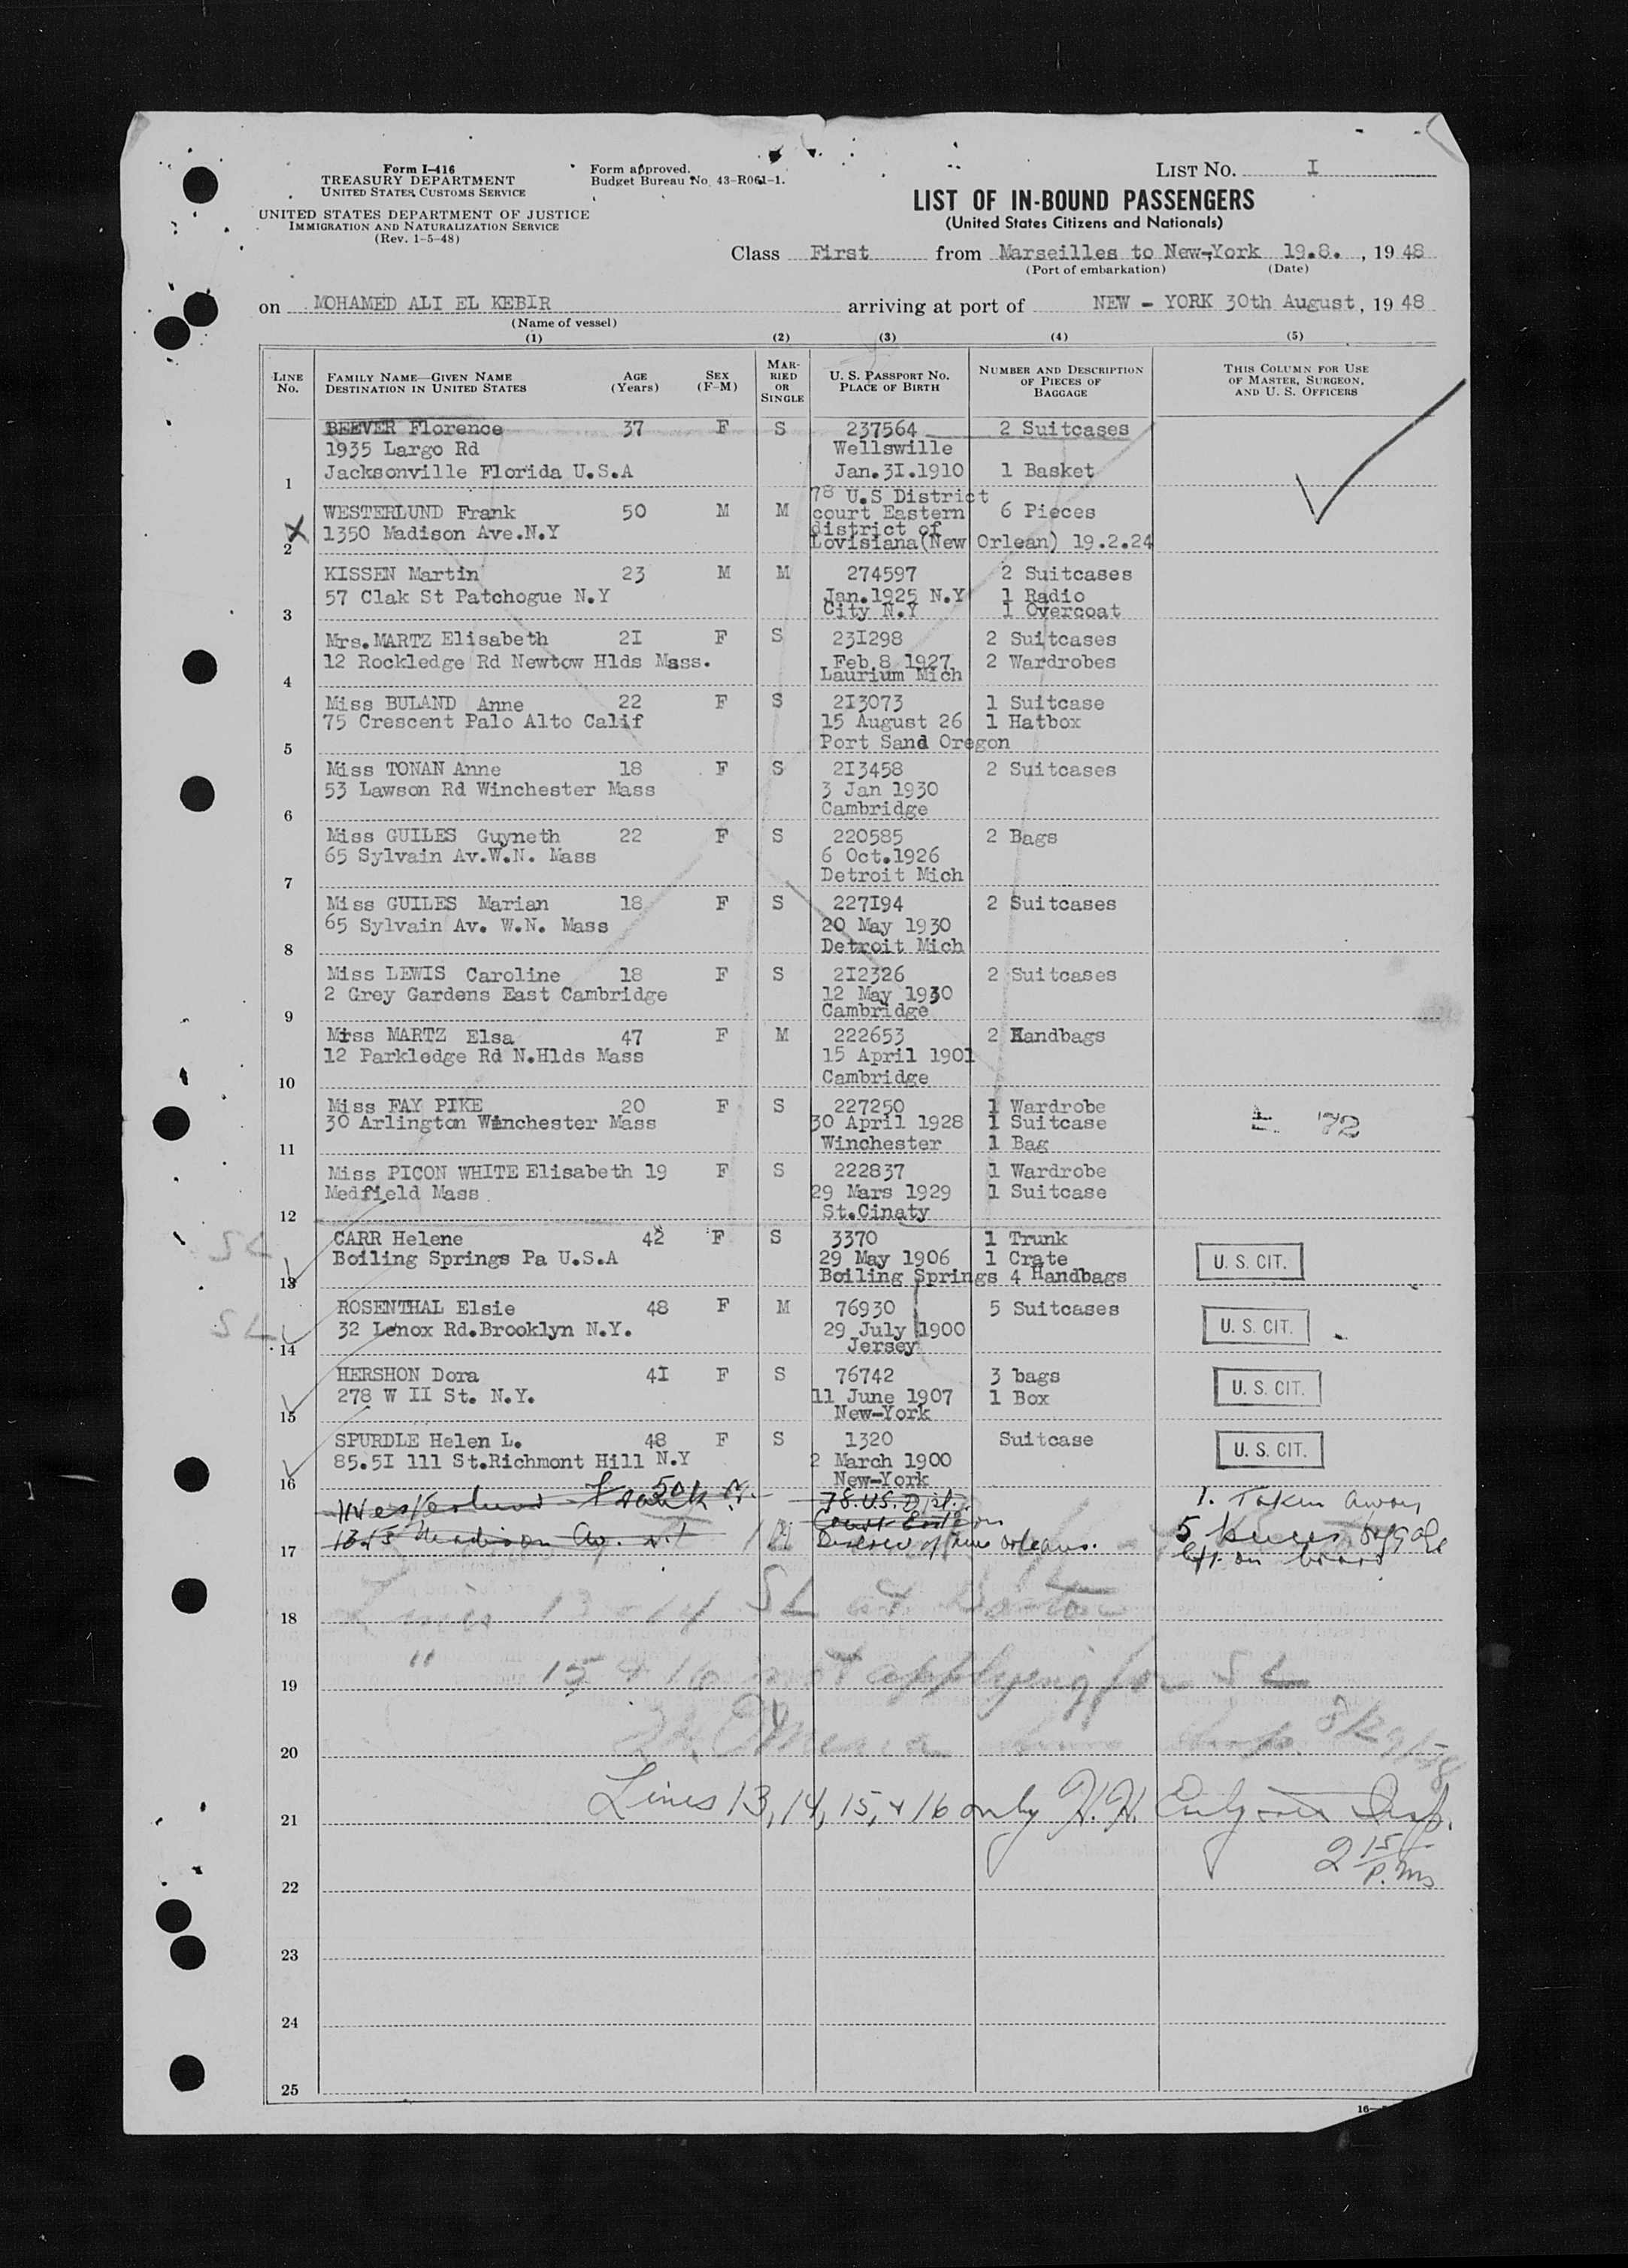 Form I-416
TREASURY DEPARTMENT
UNITED STATES CUSTOMS SERVICE
UNITED STATES DEPARTMENT OF JUSTICE
IMMIGRATION AND NATURALIZATION SERVICE
(Rev. 1-5-48)
Form approved.
Budget Bureau No. 43-R061-1.
LIST No. I
LIST OF IN-BOUND PASSENGERS
(United States Citizens and Nationals)
Class First from Marseilles to New-York 19.8., 1948
(Port of embarkation) (Date)
on MOHAMED ALI EL KEBIR arriving at port of NEW - YORK 30th August, 1948
(Name of vessel)
(1) (2) (3) (4) (5)
LINE No. FAMILY NAME—GIVEN NAME DESTINATION IN UNITED STATES AGE (Years) SEX (F-M) MARRIED OR SINGLE U. S. PASSPORT No. PLACE OF BIRTH NUMBER AND DESCRIPTION OF PIECES OF BAGGAGE THIS COLUMN FOR USE OF MASTER, SURGEON, AND U. S. OFFICERS
BEEVER Florence 37 F S 237564 2 Suitcases
1935 Largo Rd Wellswille
Jacksonville Florida U.S.A Jan.3I.1910 1 Basket
1
78 U.S District
WESTERLUND Frank 50 M M court Eastern 6 Pieces
1350 Madison Ave.N.Y district of
X 2 Lovisiana(New Orlean) 19.2.24
KISSEN Martin 23 M M 274597 2 Suitcases
57 Clak St Patchogue N.Y Jan.1925 N.Y 1 Radio
3 City N.Y 1 Overcoat
Mrs.MARTZ Elisabeth 2I F S 23I298 2 Suitcases
12 Rockledge Rd Newtow Hlds Mass. Feb.8 1927 2 Wardrobes
4 Laurium Mich
Miss BULAND Anne 22 F S 2I3073 1 Suitcase
75 Crescent Palo Alto Calif 15 August 26 1 Hatbox
5 Port Sand Oregon
Miss TONAN Anne 18 F S 2I3458 2 Suitcases
53 Lawson Rd Winchester Mass 3 Jan 1930
6 Cambridge
Miss GUILES Guyneth 22 F S 220585 2 Bags
65 Sylvain Av.W.N. Mass 6 Oct.1926
7 Detroit Mich
Miss GUILES Marian 18 F S 227I94 2 Suitcases
65 Sylvain Av. W.N. Mass 20 May 1930
8 Detroit Mich
Miss LEWIS Caroline 18 F S 2I2326 2 Suitcases
2 Grey Gardens East Cambridge 12 May 1930
9 Cambridge
Miss MARTZ Elsa 47 F M 222653 2 Handbags
12 Parkledge Rd N.Hlds Mass 15 April 1901
10 Cambridge
Miss FAY PIKE 20 F S 227250 1 Wardrobe
30 Arlington Winchester Mass 30 April 1928 1 Suitcase
11 Winchester 1 Bag
Miss PICON WHITE Elisabeth 19 F S 222837 1 Wardrobe
Medfield Mass 29 Mars 1929 1 Suitcase
12 St.Cinaty
SL CARR Helene 42 F S 3370 1 Trunk
Boiling Springs Pa U.S.A 29 May 1906 1 Crate U. S. CIT.
13 Boiling Springs 4 Handbags
SL ROSENTHAL Elsie 48 F M 76930 5 Suitcases
32 Lenox Rd.Brooklyn N.Y. 29 July 1900 U. S. CIT.
14 Jersey
HERSHON Dora 4I F S 76742 3 bags
278 W II St. N.Y. 11 June 1907 1 Box U. S. CIT.
15 New-York
SPURDLE Helen L. 48 F S 1320 Suitcase
85.5I 111 St.Richmont Hill N.Y 2 March 1900 U. S. CIT.
16 New-York
Westerlund Frank 50 78. U.S. Dist. 1. Taken away
Madison Av. N.Y Court Eastern 5 pieces baggage
17 District of New Orleans. left on board
18 Lines 13 - 14 SL at Boston
19 " 15 & 16 not applying for SL
20 8/29/48
21 Lines 13, 14, 15, & 16 only H.H. Insp.
2 15 p.m.
22
23
24
25